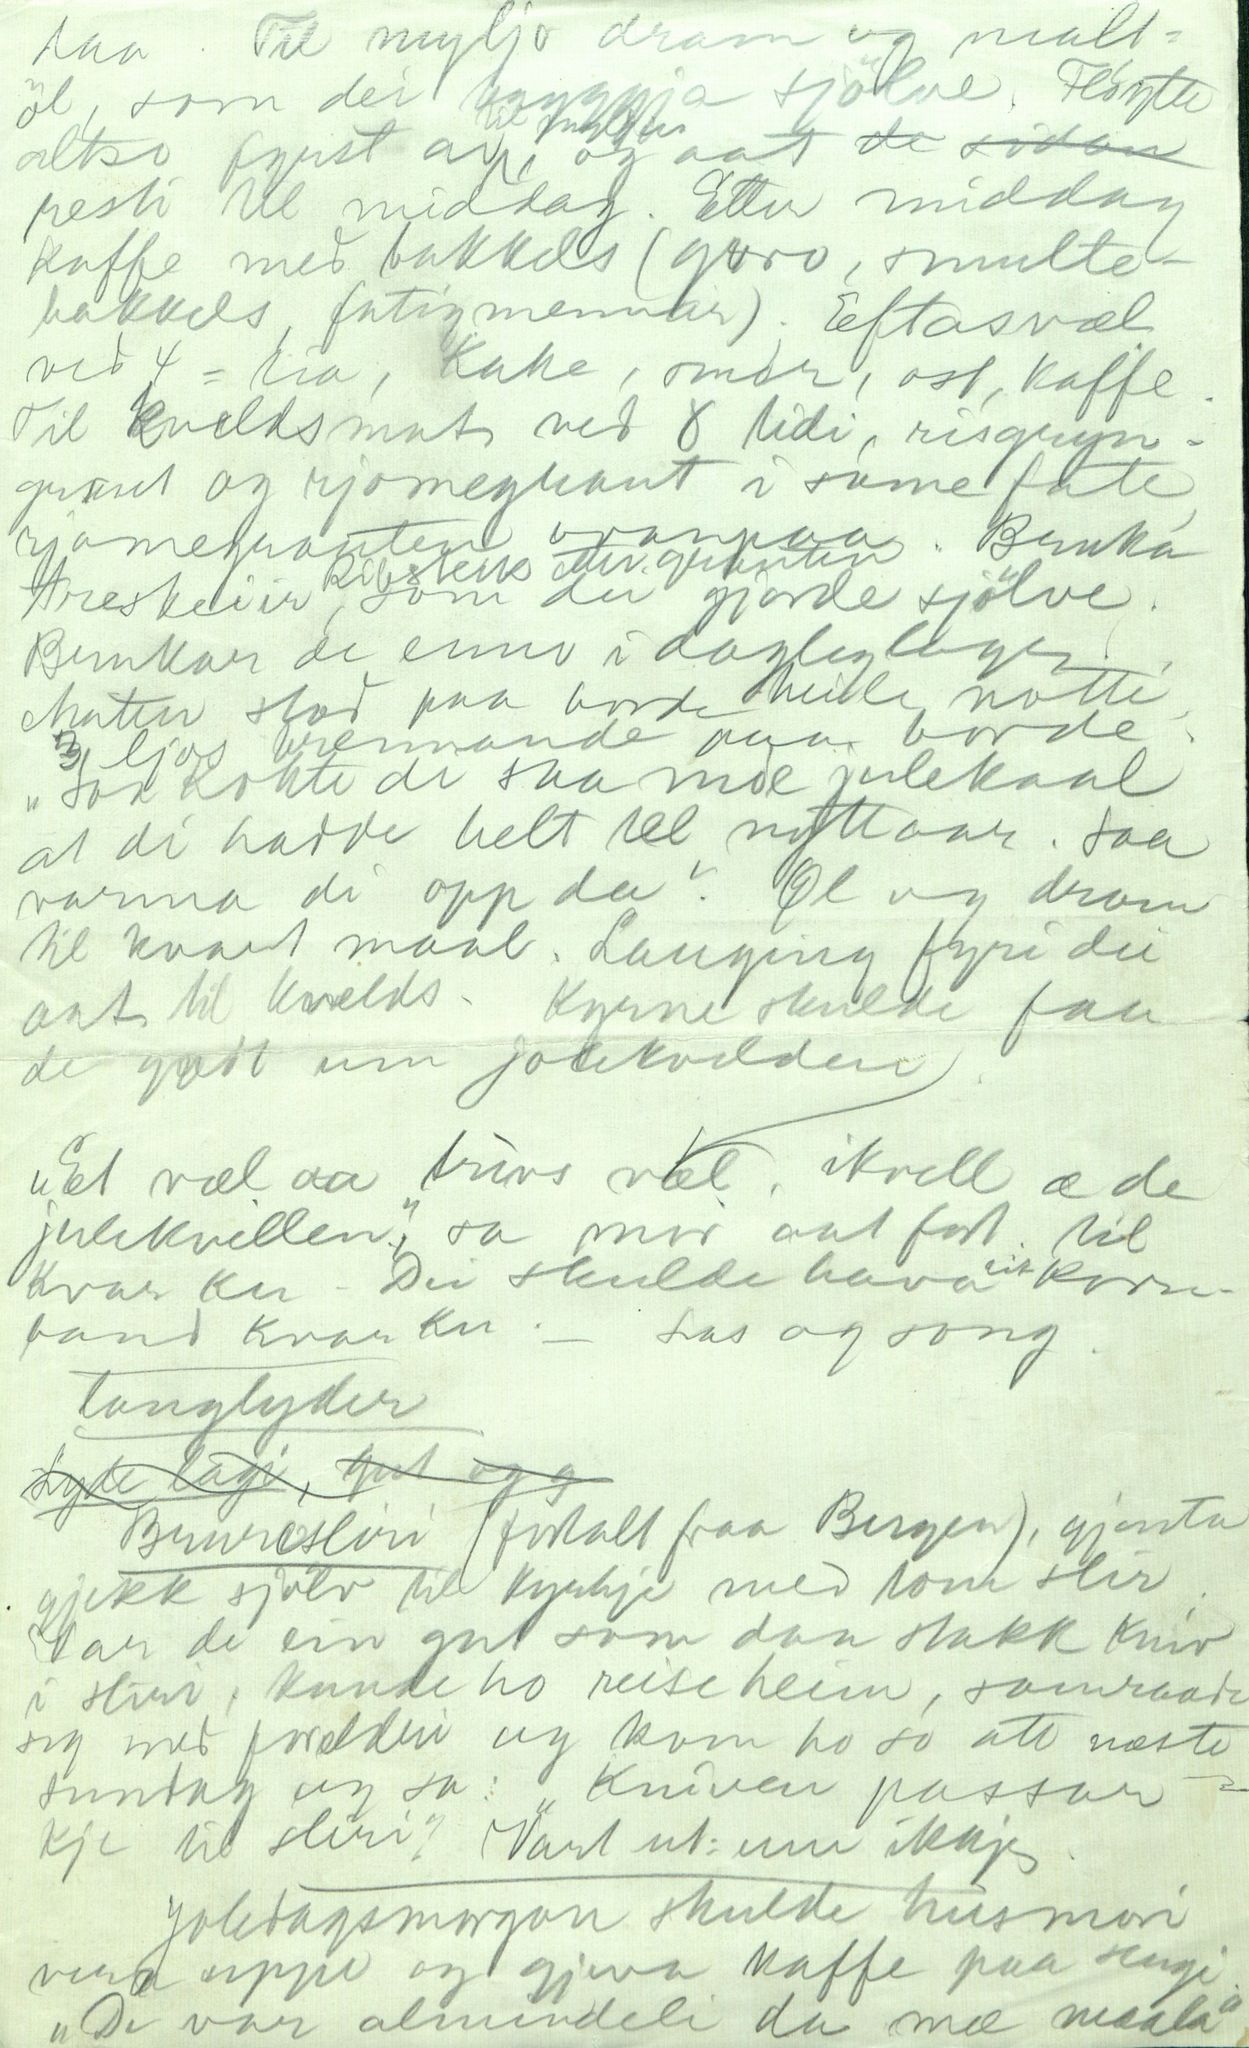 taa. Til myljo dram og malt=
öl, som dei bryggja sjölve. Flöytte
altso fyrst av, til myljun og aat de sidan
resti til middag. Etter middag
kaffe med bakkels (goro, smulte-
bakkels, fatigmennar). Eftasvæl
ved 4 = tia, kake, smör, ost, kaffe.
Til kveldsmat ved 8 tidi, risgryn-
graut og rjomegraut i same fate,
rjomegrauten ovanpaa. Bruka
treskeiir, Ribsteik etter grauten som dei gjorde sjölve.
Brukar de enno i dagleglaget.
Maten stod paa borde heile notti,
3 ljos brennande paa borde.
"Soa kokte di saa mæ julekaal
at di hadde helt tel nyttaar. Saa
varma di opp da". Öl og dram
til kvart maal. Lauging fyri dei
aat til kvelds. Kyrne skulde faa
de godt um jolekvelden.
"Et væl aa trivs væl, ikvell æ de
julekvellen", sa mor aat for til
kvar ku - Dei skulde hava eit korn-
band kvar ku. - Las og song.
Tunglyder
Lyde lagi, gut og g
Bruresliri (fortalt fraa Bergen), gjenta
gjekk sjölv til kyrkje med tom slir.
Var de ein gut som daa stakk kniv
i sliri, kunde ho reise heim, samraade
seg med foreldri og kom ho so att næste
sundag og sa: "Kniven passar -
kje til sliri"? Vart ut: um ikkje
Joledagsmorgon skulde husmori
vera uppe og gjeva kaffe paa sengi.
"De var almindeli da mæ maala"